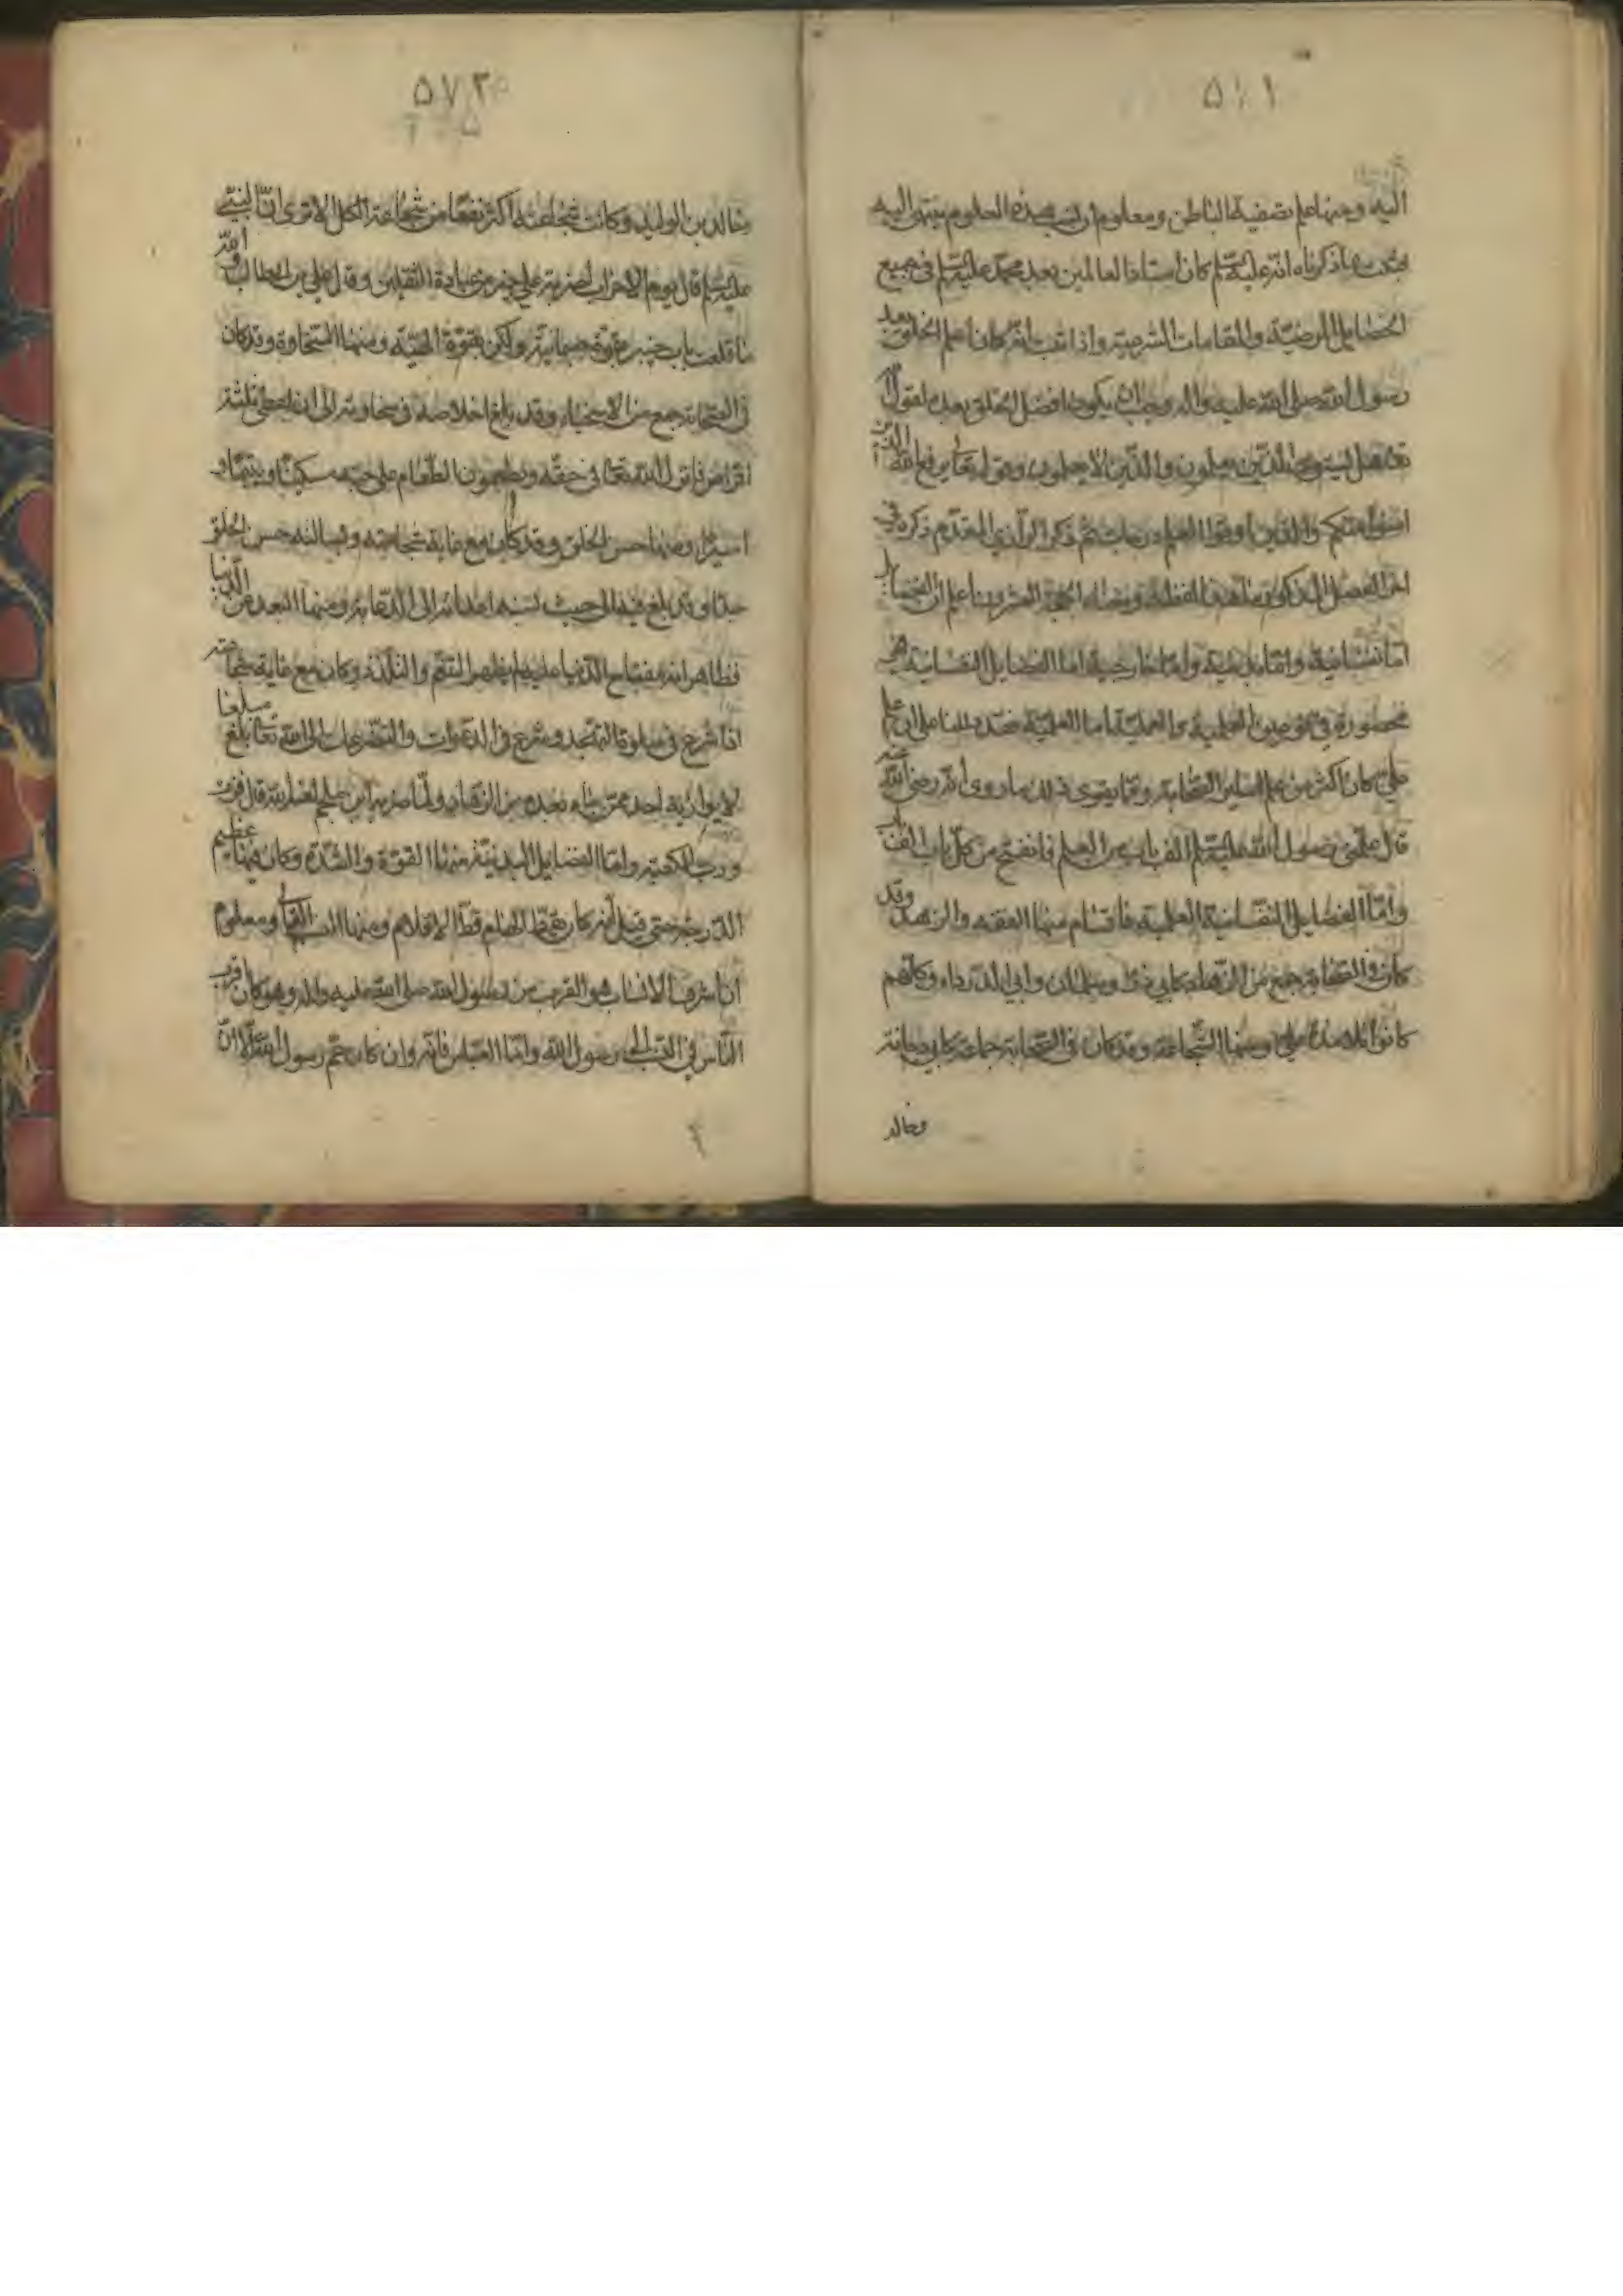 ٥٧١
اليه ومنها علم تصفية الباطن ومعلوم ان نسب هذه العلوم ينتهي اليه
فثبت بما ذكرناه انه عليه السلم كان استاذ العالمين بعد محمد عليه السلم في جميع
الخصايل المرضيّة والمقامات الشرعية واذا ثبت انه كان اعلم الخلق بعد
رسول الله صلى الله عليه واله وجب ان يكون افضل الخلق بعده لقوله
تعالى هل يستوي الذين يعلمون والذين لا يعلمون وقوله تعالى يرفع الله الذين
امنوا منكم والذين اوتوا العلم درجات ثم ذكر الرازي المقدم ذكره في
اخر الفصل المذكور ما هذا لفظه ومعناه الحجة العشرون اعلم ان الفضايل
اما نفسانية واما بدنية واما خارجية اما الفضايل النفسانية فهي
محصورة في نوعين العلمية والعملية اما العلمية فقد دللنا على ان علم
علي كان اكثر من علم ساير الصحابة ومما يقوي ذلك ما روي انه رضي الله عنه
قال علمني رسول الله عليه السلم الف باب من العلم فانفتح من كل باب الف باب
وامّا الفضايل النفسانية العملية فاقسام منها العفه والزهد وقد
كان في الصحابة جمع من الزهاد كابي ذر وسلمان وابي الدرداء وكلهم
كانوا تلامذة علي ومنها الشجاعة وقد كان في الصحابة جماعة كابي دجانة
وخالد
٥٧٢
وخالد بن الوليد وكانت شجاعته اكثر نفعا من شجاعة الكل الا ترى ان النبي
عليه السلم قال يوم الاحزاب لضربة علي خير من عبادة الثقلين وقال علي بن ابي طالب والله
ما قلعت باب خيبر بقوة جسمانية ولكن بقوة الهيّة ومنها السخاوة وقد كان
في الصحابة جمع من الاسخياء وقد بلغ اخلاصه في سخاوته الى ان اعطى ثلثة
اقراص فانزل الله تعالى في حقه ويطعمون الطعام على حبه مسكينا ويتيما و
اسيرا ومنها حسن الخلق وقد كان مع غاية شجاعته وبسالته حسن الخلق
جدّا وقد بلغ فيه الى حيث نسبه اعداؤه الى الدعابة ومنها البعد عن الدنيا
فظاهر انه مع انفتاح الدنيا عليه لم يظهر التنعم والتلذذ وكان مع غاية شجاعته
اذا شرع في صلوة التهجد وشرع في الدعوات والتضرعات الى الله تعالى بلغ مبلغا
لا يوازيه احد ممن جاء بعده من الزهاد ولما ضربه ابن ملجم لعنه الله قال فزت
ورب الكعبة وامّا الفضايل البدنية فمنها القوة والشدة وكان فيهما عظيم
الدرجة حتى قيل انه كان يقط الهام قط الاقلام ومنها النسب العالي ومعلوم
ان اشرف الانساب هو القرب من رسول الله صلى الله عليه واله وهو كان اقرب
الناس في النسب الى رسول الله وامّا العباس فانه وان كان عم رسول الله الا ان